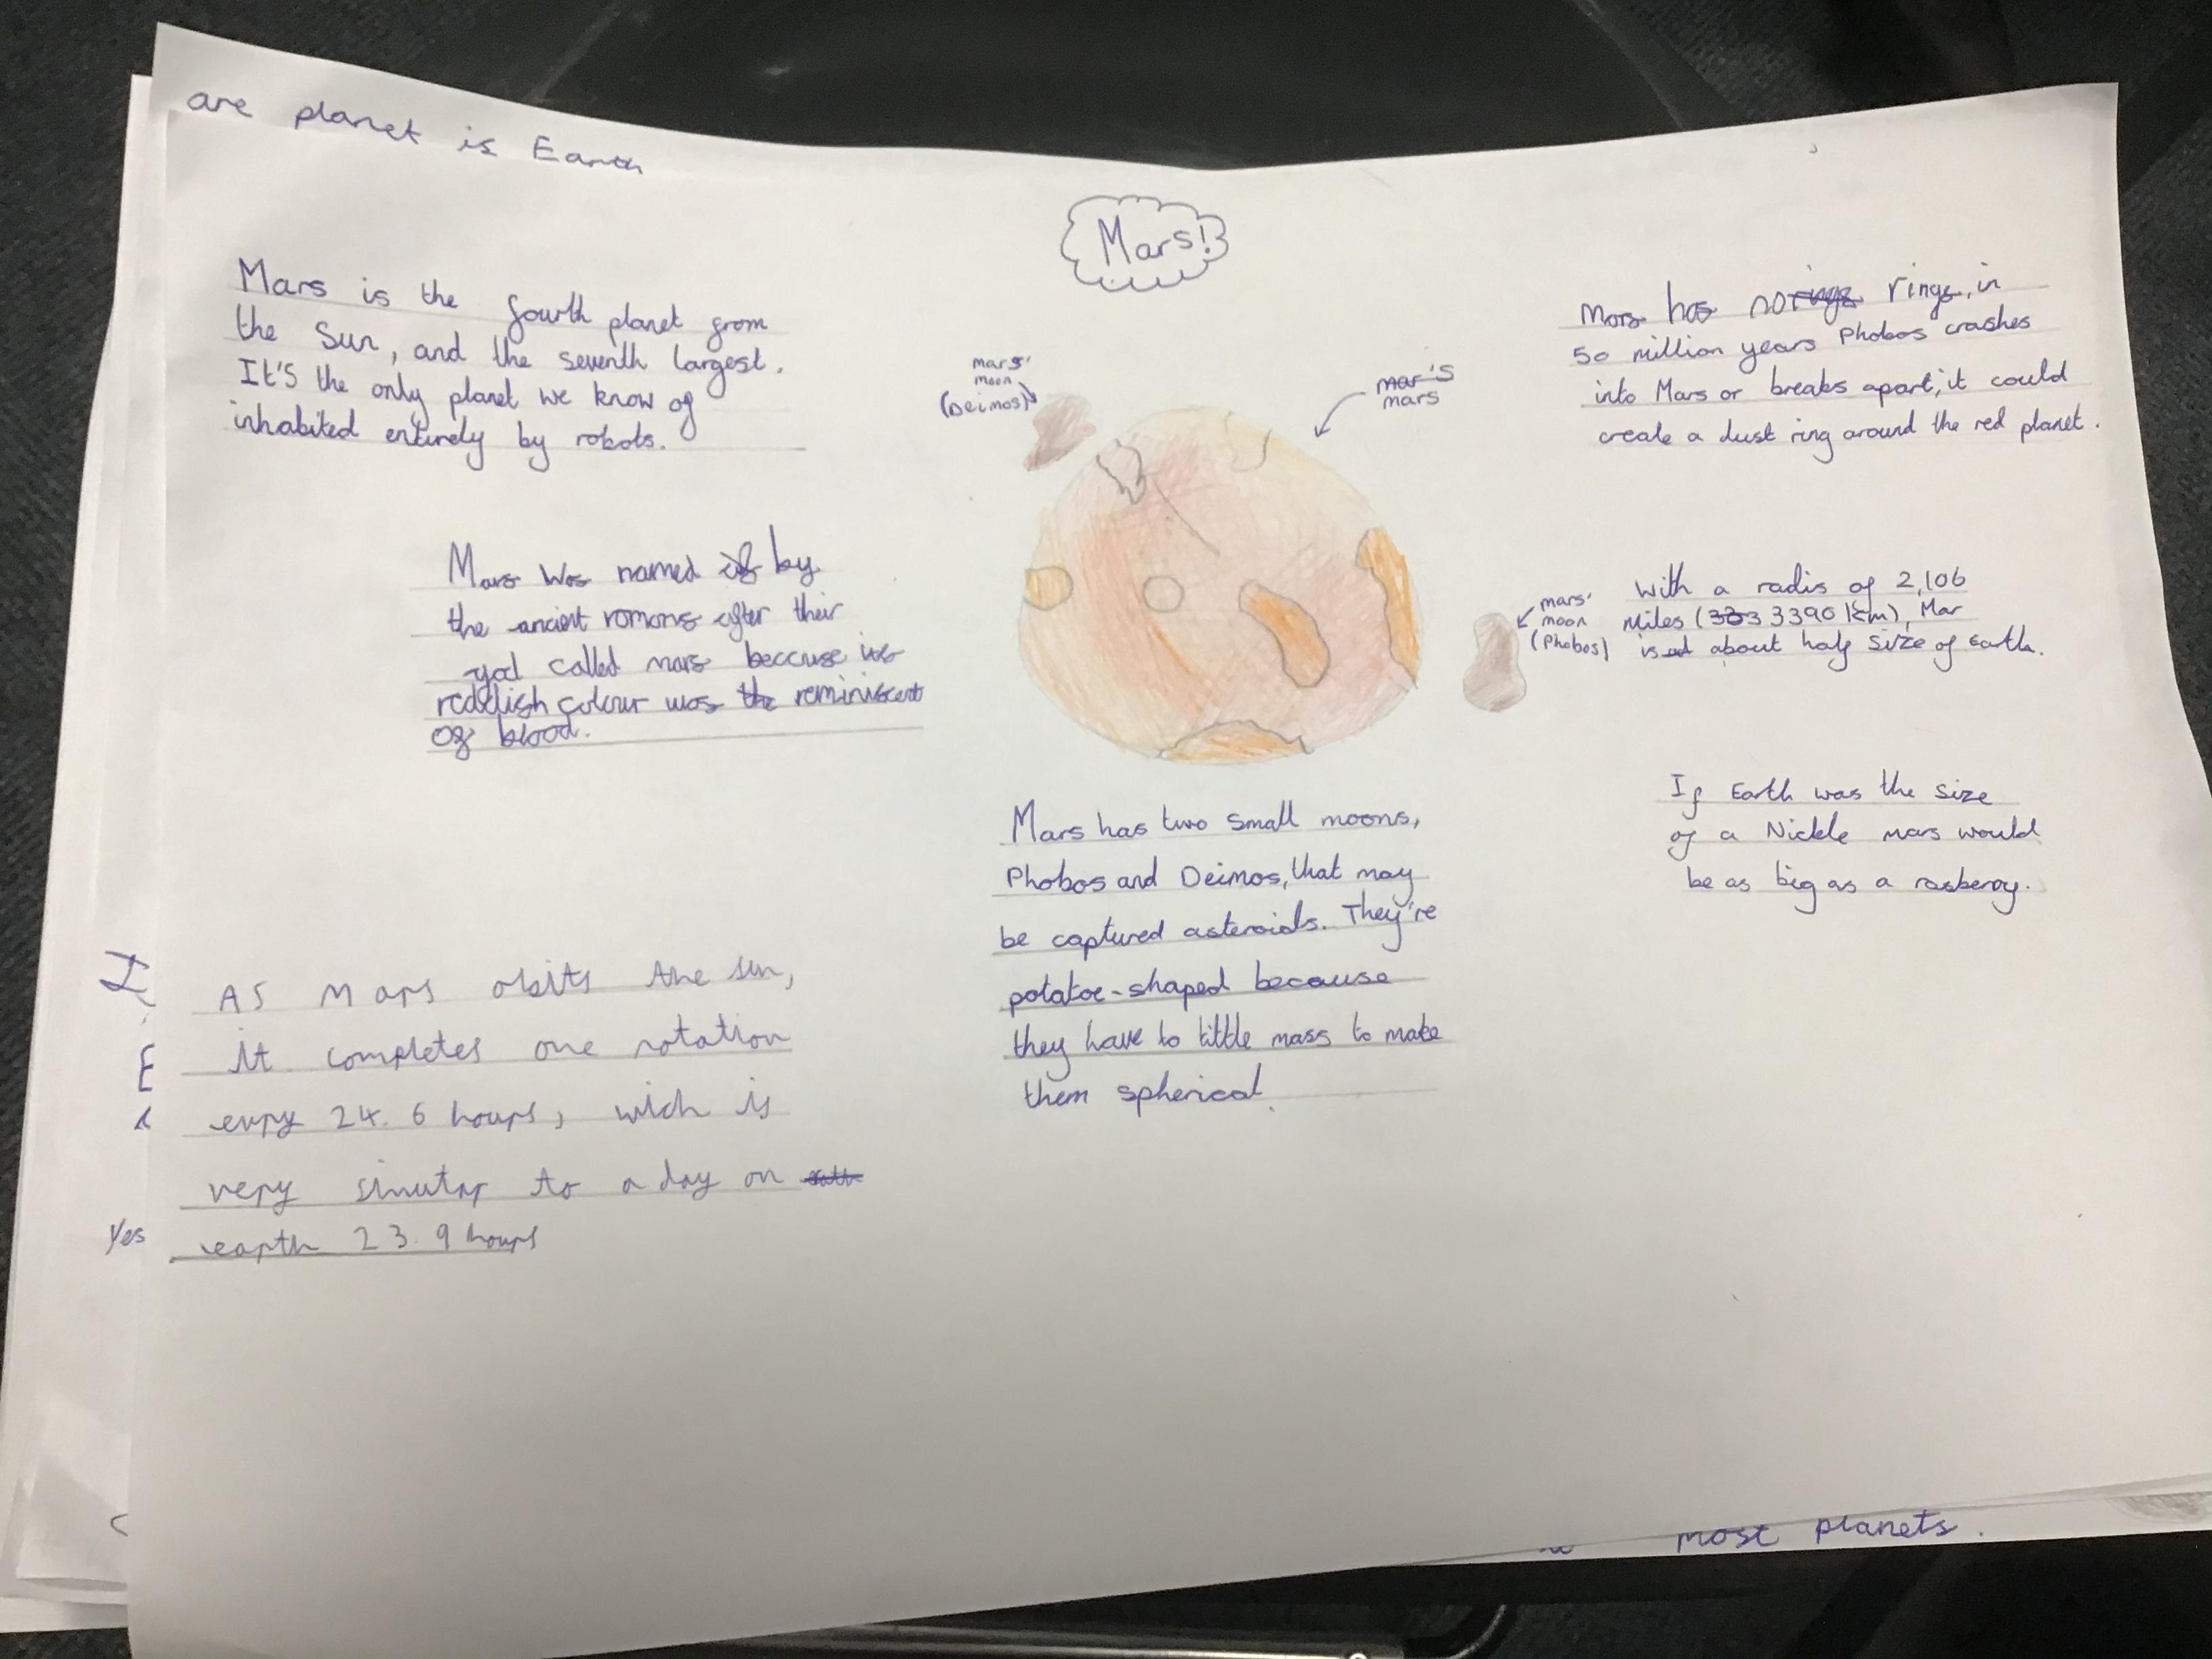 are planet is Earth
Mars!
Mars is the fourth planet from
the Sun, and the seventh largest.
It's the only planet we know of
inhabited entirely by robots.
Mars was named by
the ancient romans after their
god called mars beccuse its
reddish colour was the reminiscent
of blood.
As Mars orbits the sun,
it completes one rotation
evry 24.6 hours, wich is
very similar to a day on
earth 23.9 hours
mars'
moon
(Deimos)
mar's
mars
mars'
moon
(Phobos)
Mars has two small moons,
Phobos and Deimos, that may
be captured asteroids. They're
potatoe-shaped because
they have to little mass to make
them spherical.
Mars has no rings rings, in
50 million years Phobos crashes
into Mars or breaks apart, it could
create a dust ring around the red planet.
With a radis of 2,106
Miles (333 3390 km), Mar
is about half size of Earth.
If Earth was the size
of a Nickle mars would
be as big as a rasberry.
I
E
Yes
most planets.